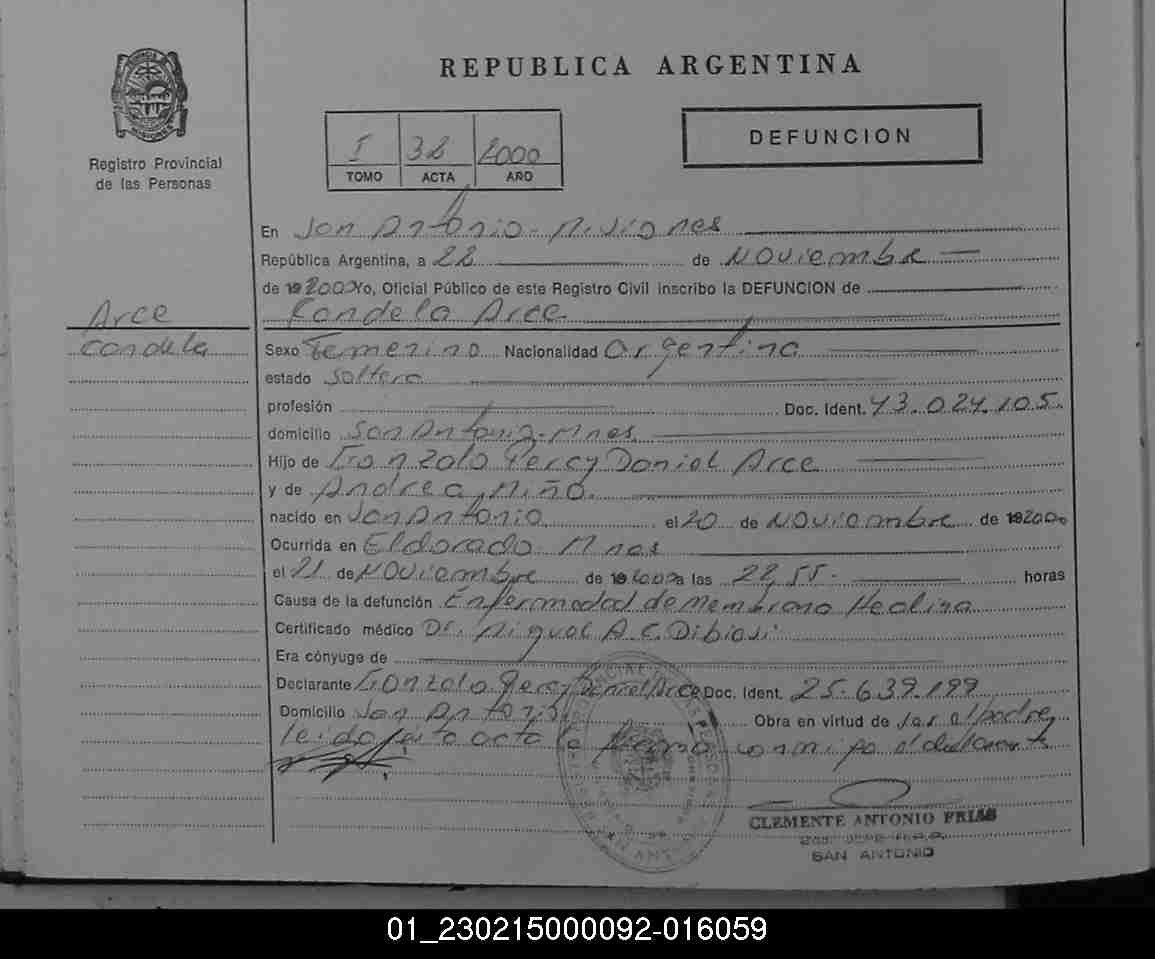 REPUBLICA ARGENTINA
Registro Provincial
de las Personas
I 38 2000
TOMO ACTA AÑO
DEFUNCION
En San Antonio - Misiones
República Argentina, a 22 de Noviembre
de 2000 Yo, Oficial Público de este Registro Civil inscribo la DEFUNCION de
Arce
Candela
Kandela Arce
Sexo Femenino Nacionalidad Argentina
estado Soltera
profesión Doc. Ident. 43.024.105
domicilio San Antonio - Mnes
Hijo de Gonzalo Percy Daniel Arce
y de Andrea Miño
nacido en San Antonio el 20 de Noviembre de 2000
Ocurrida en Eldorado Mnes
el 21 de Noviembre de 2000 a las 22,55 horas
Causa de la defunción Enfermedad de Membrana Healina
Certificado médico Dr. Miguel A. C. Dibiasi
Era cónyuge de
Declarante Gonzalo Percy Daniel Arce Doc. Ident. 25.639.199
Domicilio San Antonio Obra en virtud de ser el padre,
leida esta acta la firma conmigo el declarante
CLEMENTE ANTONIO FRIAS
SAN ANTONIO
01_230215000092-016059